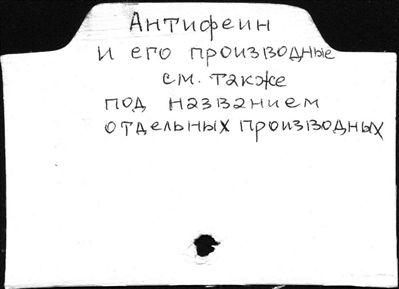 Антифеин
и его производные
см. также
под названием
отдельных производных